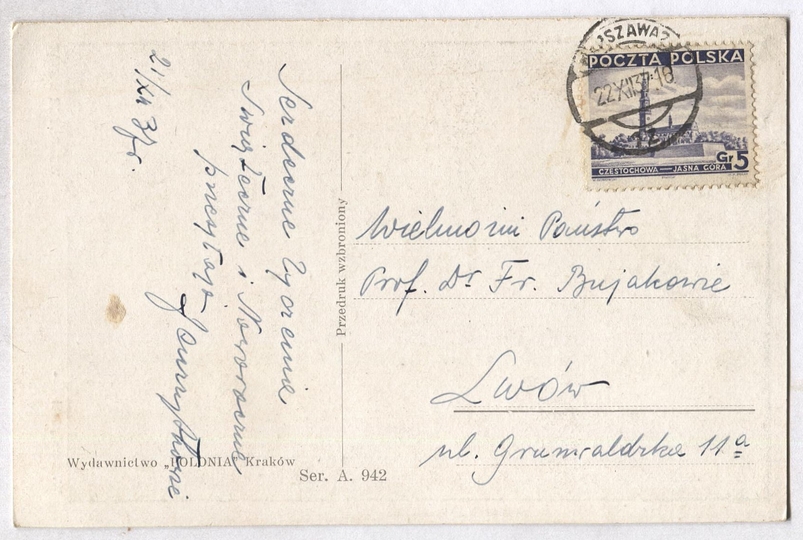 21/XII 37 r.
Serdeczne życzenia
Świąteczne i Noworoczne
przesyłają
Przedruk wzbroniony
WARSZAWA 2
22 XII 37·18
POCZTA POLSKA
Gr 5
CZĘSTOCHOWA — JASNA GÓRA
Wielmożni Państwo
Prof. Dr Fr. Bujakowie
Lwów
ul. Grunwaldzka 11a
Wydawnictwo „POLONIA” Kraków
Ser. A. 942